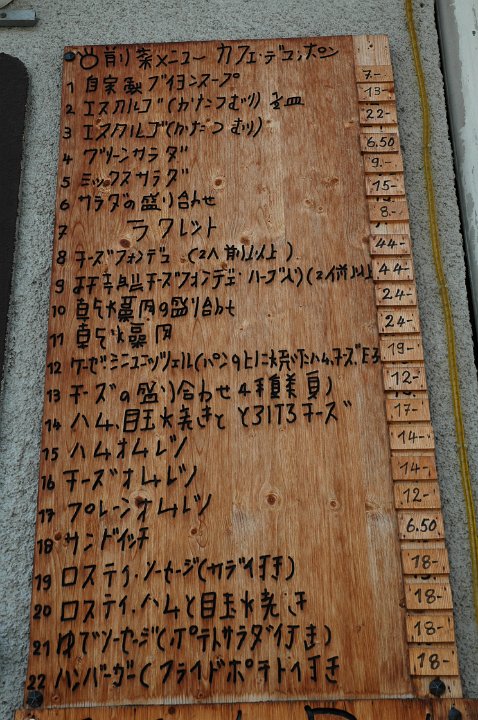 自家製ブイヨンスープ 7.-
1
2 エスカルゴ(かたつむり) 13.-
3 エスカルゴ(かたつむり) 22.-
4 グリーンサラダ 6.50
5 ミックスサラダ 9.-
6 サラダの盛り合わせ 15.-
7 ラクレット 8.-
8 チーズフォンデュ (2人前以上) 44.-
9 チーズフォンデュ・ハーブ入り(2人前以上 44.-
10 真空燻肉の盛り合わせ 24.-
11 真空燻肉 24.-
12 ケーゼ・ミニュッツェル(パンの上に焼いたハム,チーズ 19.-
13 チーズの盛り合わせ 4種類 12.-
14 ハム,目玉焼きと とろけるチーズ 17.-
15 ハムオムレツ 14.-
16 チーズオムレツ 14.-
17 プレーンオムレツ 12.-
18 サンドイッチ 6.50
19 ロスティ・ソーセージ(サラダ付き) 18.-
20 ロスティ,ハムと目玉焼き 18.-
21 ゆでソーセージ(ポテトサラダ付き) 18.-
22 ハンバーガー(フライドポテト付き 18.-